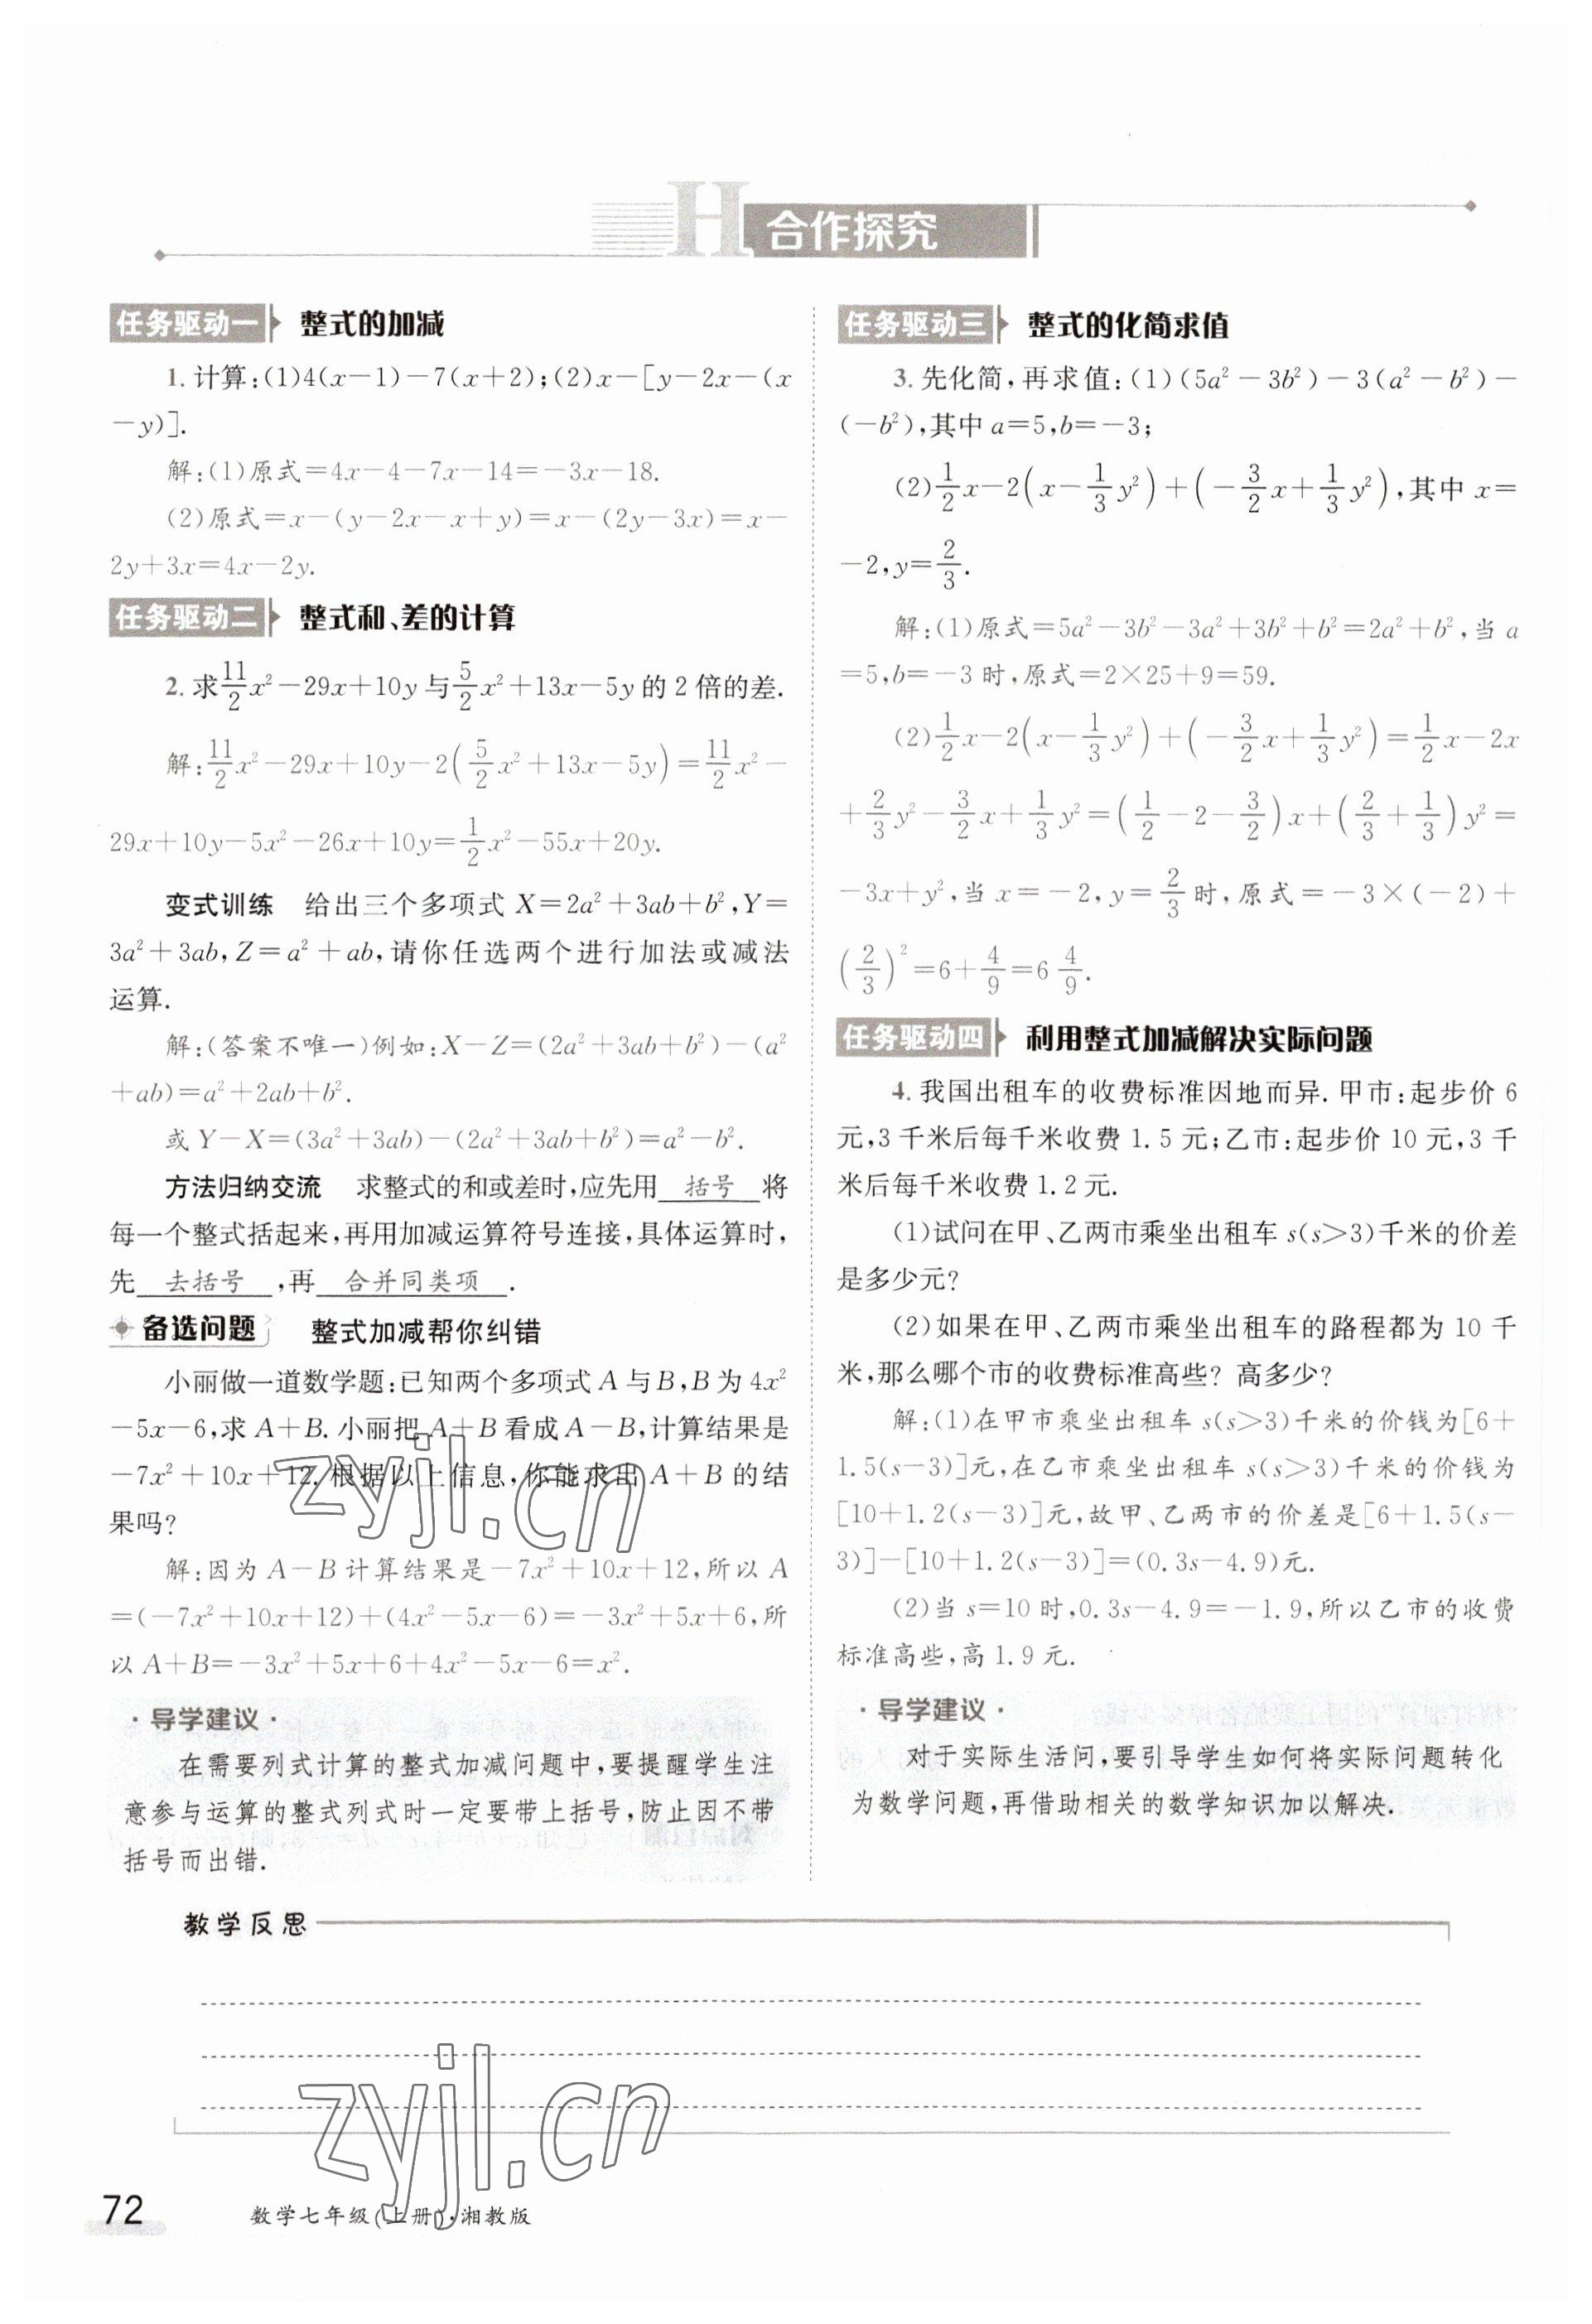 H 合作探究
任务驱动一 整式的加减
1. 计算:(1)4(x-1)-7(x+2);(2)x-[y-2x-(x
-y)].
解:(1)原式=4x-4-7x-14=-3x-18.
(2)原式=x-(y-2x-x+y)=x-(2y-3x)=x-
2y+3x=4x-2y.
任务驱动二 整式和、差的计算
2. 求11/2x²-29x+10y与5/2x²+13x-5y的2倍的差.
解:11/2x²-29x+10y-2(5/2x²+13x-5y)=11/2x²-
29x+10y-5x²-26x+10y=1/2x²-55x+20y.
变式训练 给出三个多项式X=2a²+3ab+b²,Y=
3a²+3ab,Z=a²+ab,请你任选两个进行加法或减法
运算.
解:(答案不唯一)例如:X-Z=(2a²+3ab+b²)-(a²
+ab)=a²+2ab+b².
或Y-X=(3a²+3ab)-(2a²+3ab+b²)=a²-b².
方法归纳交流 求整式的和或差时,应先用 括号 将
每一个整式括起来,再用加减运算符号连接,具体运算时,
先 去括号 ,再 合并同类项 .
备选问题 整式加减帮你纠错
小丽做一道数学题:已知两个多项式A与B,B为4x²
-5x-6,求A+B. 小丽把A+B看成A-B,计算结果是
-7x²+10x+12. 根据以上信息,你能求出A+B的结
果吗?
解:因为A-B计算结果是-7x²+10x+12,所以A
=(-7x²+10x+12)+(4x²-5x-6)=-3x²+5x+6,所
以A+B=-3x²+5x+6+4x²-5x-6=x².
·导学建议·
在需要列式计算的整式加减问题中,要提醒学生注
意参与运算的整式列式时一定要带上括号,防止因不带
括号而出错.
任务驱动三 整式的化简求值
3. 先化简,再求值:(1)(5a²-3b²)-3(a²-b²)-
(-b²),其中a=5,b=-3;
(2)1/2x-2(x-1/3y²)+(-3/2x+1/3y²),其中x=
-2,y=2/3.
解:(1)原式=5a²-3b²-3a²+3b²+b²=2a²+b²,当a
=5,b=-3时,原式=2×25+9=59.
(2)1/2x-2(x-1/3y²)+(-3/2x+1/3y²)=1/2x-2x
+2/3y²-3/2x+1/3y²=(1/2-2-3/2)x+(2/3+1/3)y²=
-3x+y²,当x=-2,y=2/3时,原式=-3×(-2)+
(2/3)²=6+4/9=6 4/9.
任务驱动四 利用整式加减解决实际问题
4. 我国出租车的收费标准因地而异. 甲市:起步价6
元,3千米后每千米收费1.5元;乙市:起步价10元,3千
米后每千米收费1.2元.
(1)试问在甲、乙两市乘坐出租车s(s>3)千米的价差
是多少元?
(2)如果在甲、乙两市乘坐出租车的路程都为10千
米,那么哪个市的收费标准高些? 高多少?
解:(1)在甲市乘坐出租车s(s>3)千米的价钱为[6+
1.5(s-3)]元,在乙市乘坐出租车s(s>3)千米的价钱为
[10+1.2(s-3)]元,故甲、乙两市的价差是[6+1.5(s-
3)]-[10+1.2(s-3)]=(0.3s-4.9)元.
(2)当s=10时,0.3s-4.9=-1.9,所以乙市的收费
标准高些,高1.9元.
·导学建议·
对于实际生活问,要引导学生如何将实际问题转化
为数学问题,再借助相关的数学知识加以解决.
zyjl.cn
教学反思
zyjl.cn
72
数学七年级(上册)·湘教版